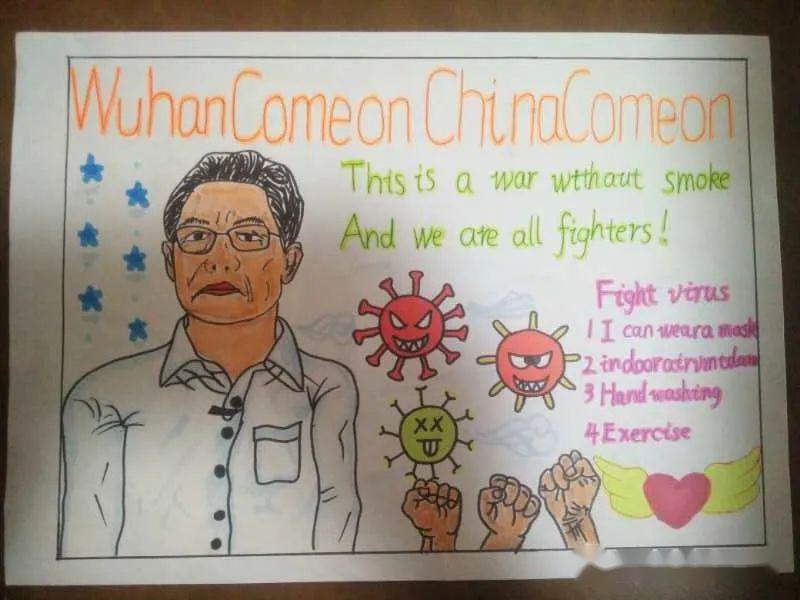 Wuhan Comeon China Comeon
This is a war wtthaut smoke
And we are all fighters!
Fight virus
1 I can wear a mask
2 indoor
3 Hand washing
4 Exercise